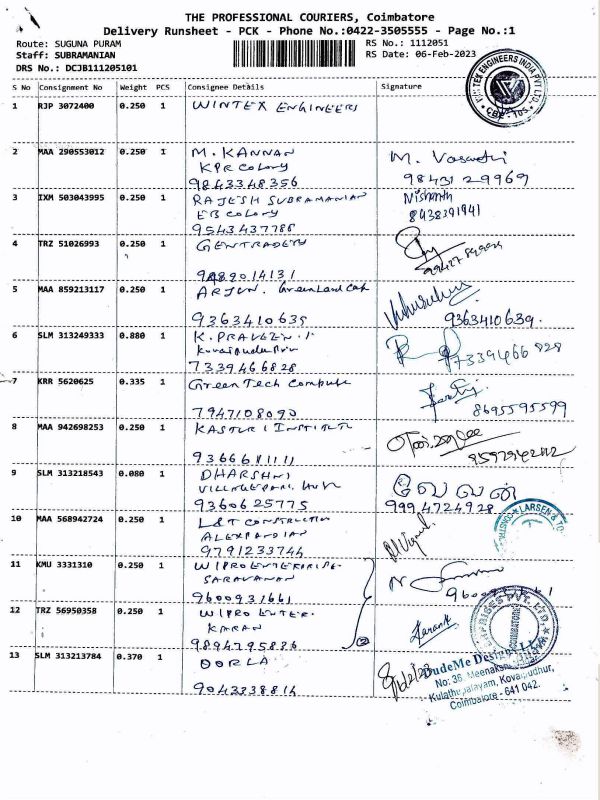 THE PROFESSIONAL COURIERS, Coimbatore
Delivery Runsheet - PCK - Phone No.:0422-3505555 - Page No.:1
Route: SUGUNA PURAM
RS No.: 1112051
Staff: SUBRAMANIAN
RS Date: 06-Feb-2023
DRS No.: DCJB111205101
S No Consignment No Weight PCS Consignee Details Signature
1 RJP 3072400 0.250 1 WINTEX ENGINEERS
TEK ENGINEERS INDIA PVT LTD.
CBE - TDS
2 MAA 290553012 0.250 1 M. KANNAN M. Vasathi
KPR Colony
9843348356 98431 29969
3 IXM 503043995 0.250 1 RAJESH SUBRAMANIAN Nishanth
EB Colony 8438391941
9543437786
4 TRZ 51026993 0.250 1
9489014131
5 MAA 859213117 0.250 1 ARJUN. GreenLand
9363410639 9363410639.
6 SLM 313249333 0.880 1 K. PRAVEEN
7339466828 7339466828
7 KRR 5620625 0.335 1 GreenTech Compute
7947108090 8695595599
8 MAA 942698253 0.250 1 KASTURI INSTITUTE
9366681111
9 SLM 313218543 0.080 1 DHARSHNI வேலன்
9360625775 9994724928
10 MAA 568942724 0.250 1 L&T CONSTRUCTION
9791233744
LARSEN & TO
11 KMU 3331310 0.250 1 WIPRO ENTERPRISE
SARAVANAN
9600931661
12 TRZ 56950358 0.250 1 WIPRO ENTER.
KARAN
9894795886
PRISES PVT. LTD.
COIMBATORE
13 SLM 313213784 0.370 1 DORLA
9043338814
DudeMe Designs
No: 36, Meenakshi
Kulathupalayam, Kovaipudhur,
Coimbatore - 641 042.